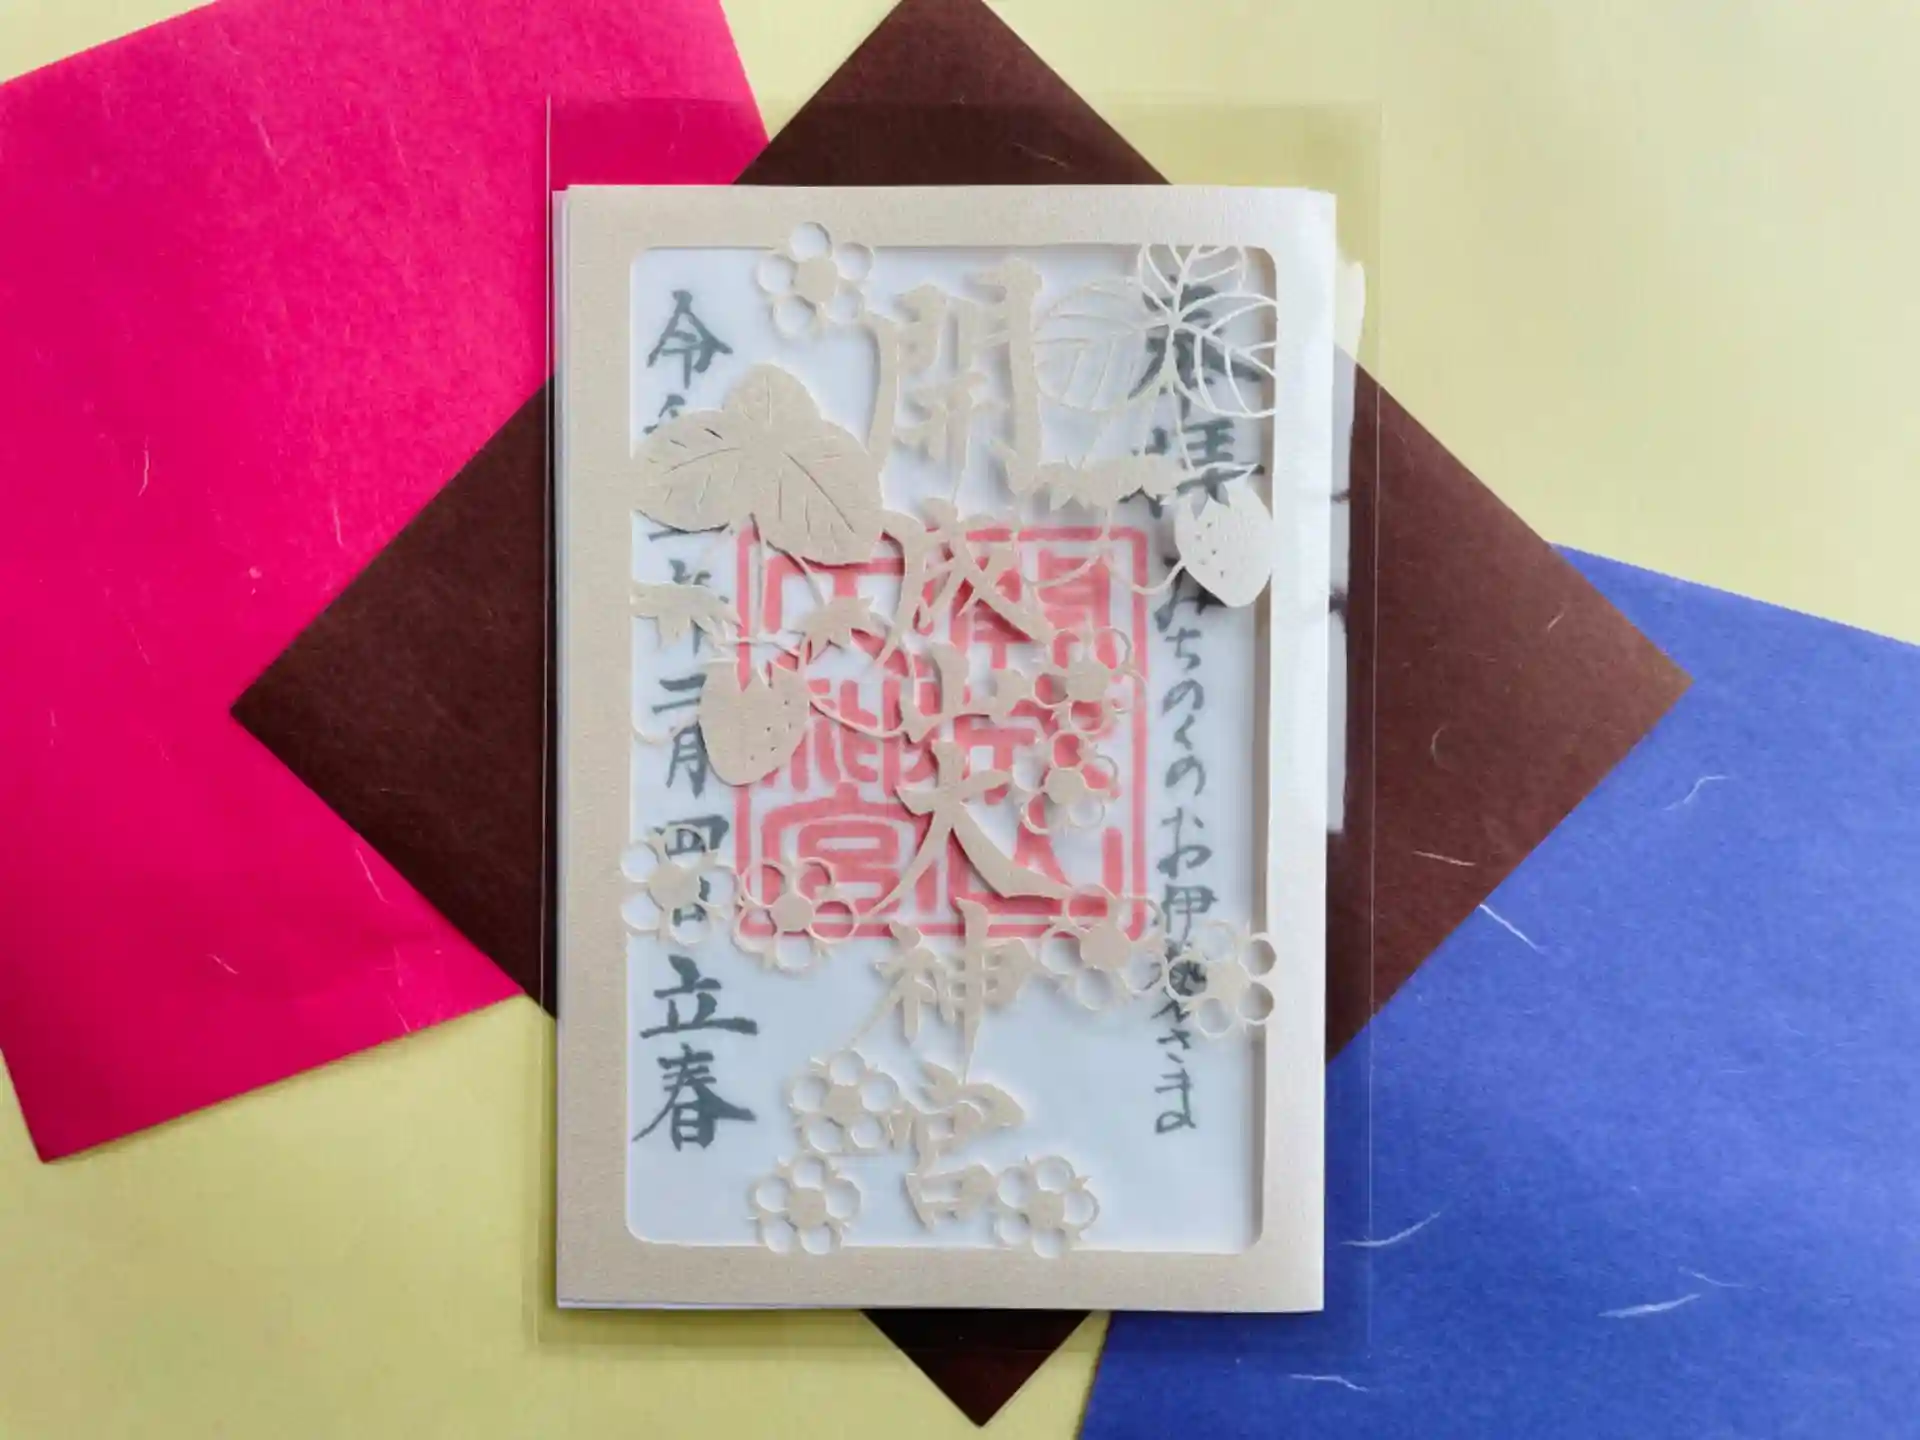 奉拝
みちのくのお伊勢さま
開成山大神宮
開成山
大神宮
令和 年二月四日
立春